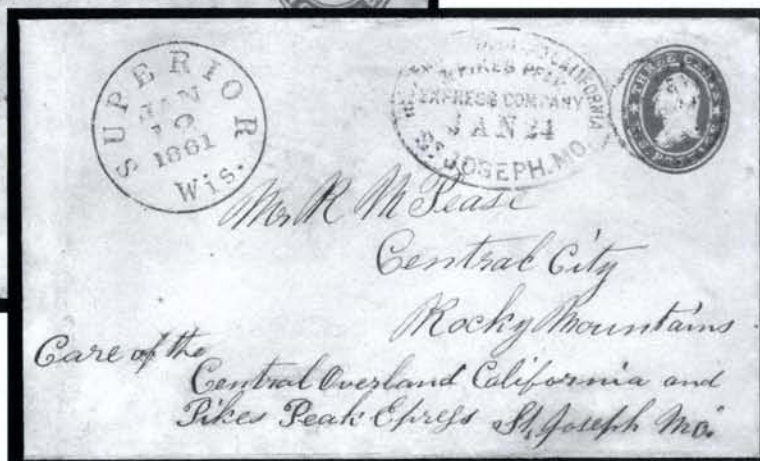 SUPERIOR
JAN
1861
Wis.
CALIFORNIA
PIKES PEAK
EXPRESS COMPANY
JAN 24
ST JOSEPH. MO.
THREE CENTS
Mr R M Pease
Central City
Rocky Mountains
Care of the
Central Overland California and
Pikes Peak Epress St, Joseph Mo.